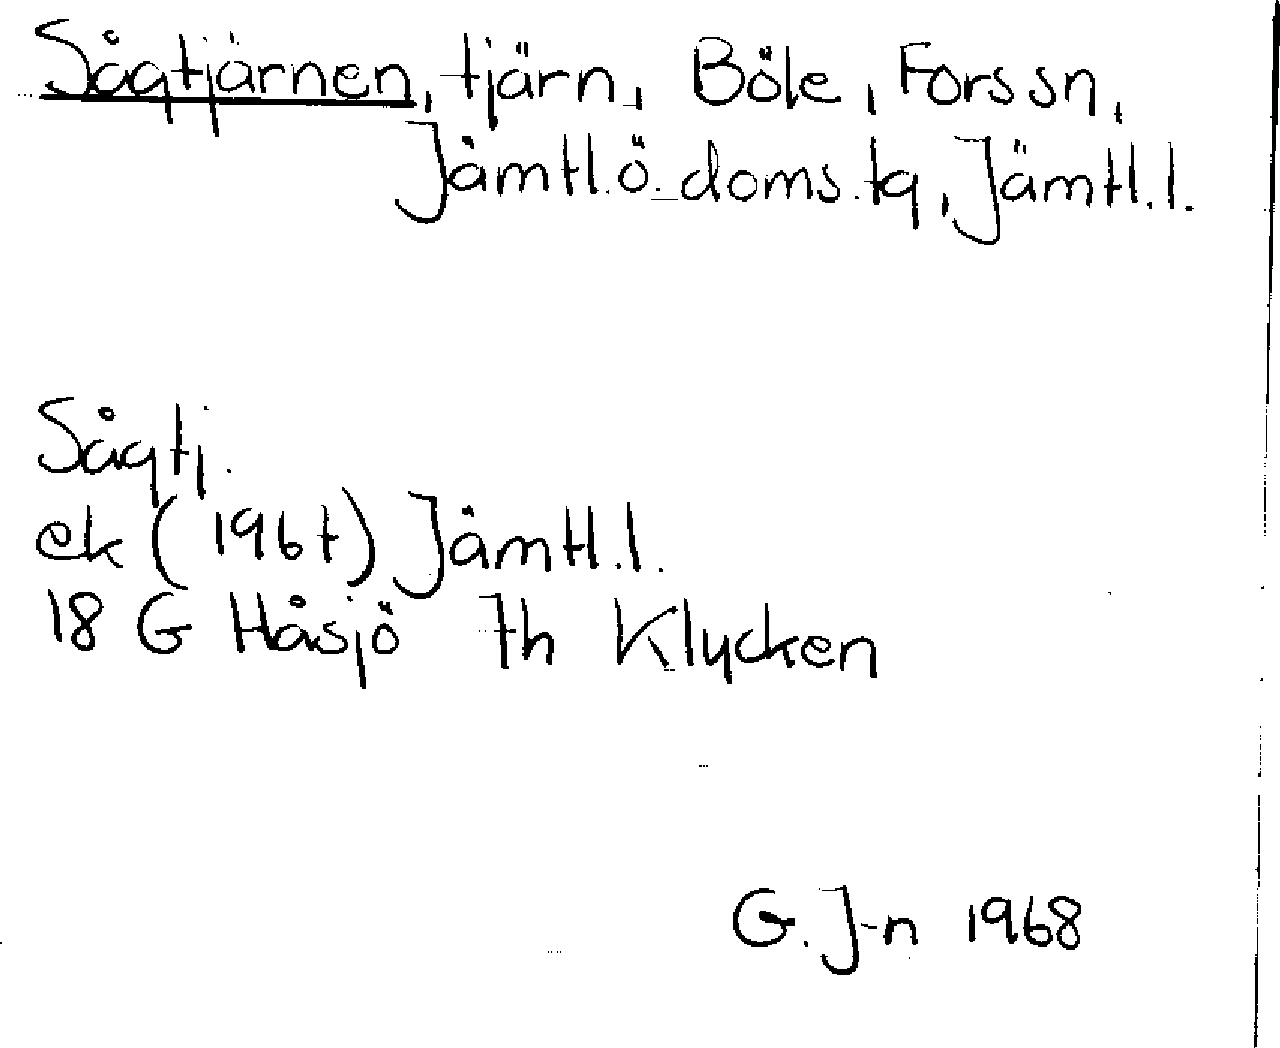 Sågtjärnen, tjärn, Böle, Forssn,
Jämtl.ö.doms.tg, Jämtl.l.
Sågtj.
ek (1967) Jämtl.l.
18 G Håsjö 7h Klycken
G. J-n 1968